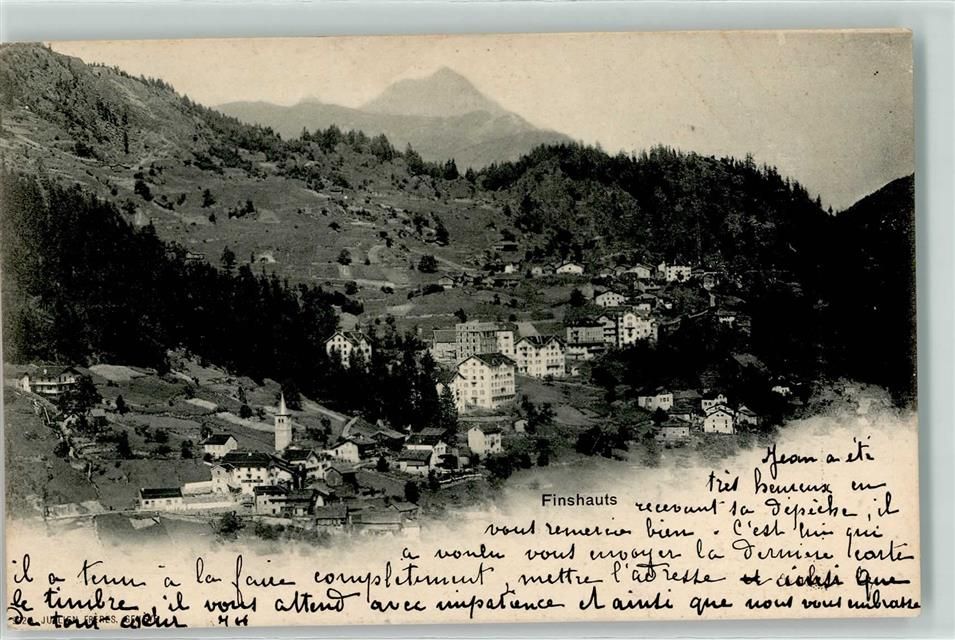 Finshauts
Jean a été
très heureux en
recevant sa dépêche, il
vous remercie bien. C'est lui qui
a voulu vous envoyer la dernière carte
il a tenu à la faire complètement, mettre l'adresse ainsi que
le timbre, il vous attend avec impatience et ainsi que nous vous embrasse
de tout cœur
JULLIEN FRÈRES, GENÈVE